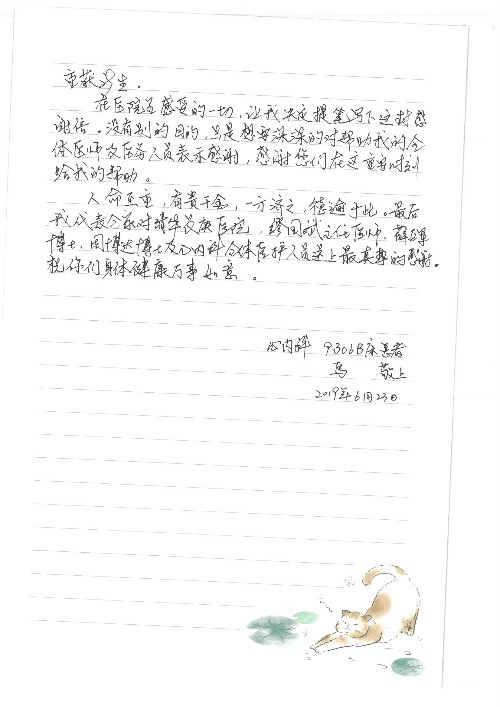 重获新生。
在医院至感受的一切，让我决定提笔写下这封感
谢信。没有别的目的，只是想要深深的对帮助我的全
体医师及医务人员表示感谢，感谢您们在这重要时刻
给我的帮助。
人命至重，有贵千金，一方济之，德逾于此。最后
我代表全家对瑞华医院，缪国斌主任医师、
博士、周博达博士及心内科全体医护人员送上最真挚的感谢。
祝你们身体健康万事如意。
心内科 9306B床患者
马 敬上
2019年6月23日